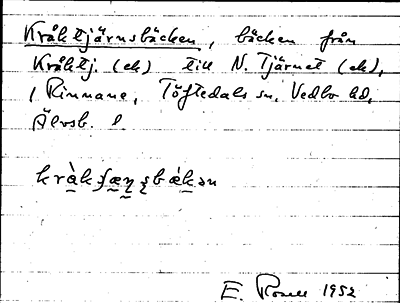 Kråktjärnsbäcken, bäcken från
Kråktj. (ek) till N. Tjärnet (ek),
, Rinnane, Töftedals sn, Vedbo hd,
Älvsb. l
E. 1952